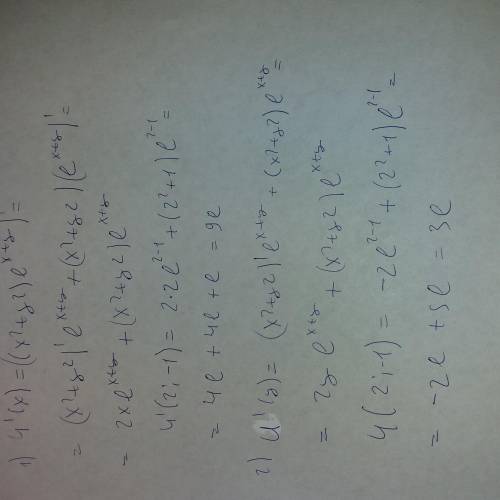 1) u'(x) = ((x²+y²)e^(x+y))' =
= (x²+y²)'e^(x+y) + (x²+y²)(e^(x+y))' =
= 2xe^(x+y) + (x²+y²)e^(x+y)
u'(2;-1) = 2·2e^(2-1) + (2²+1)e^(2-1) =
= 4e + 4e + e = 9e
2) u'(y) = (x²+y²)'e^(x+y) + (x²+y²)e^(x+y) =
= 2ye^(x+y) + (x²+y²)e^(x+y)
u(2;-1) = -2e^(2-1) + (2²+1)e^(2-1) =
= -2e + 5e = 3e